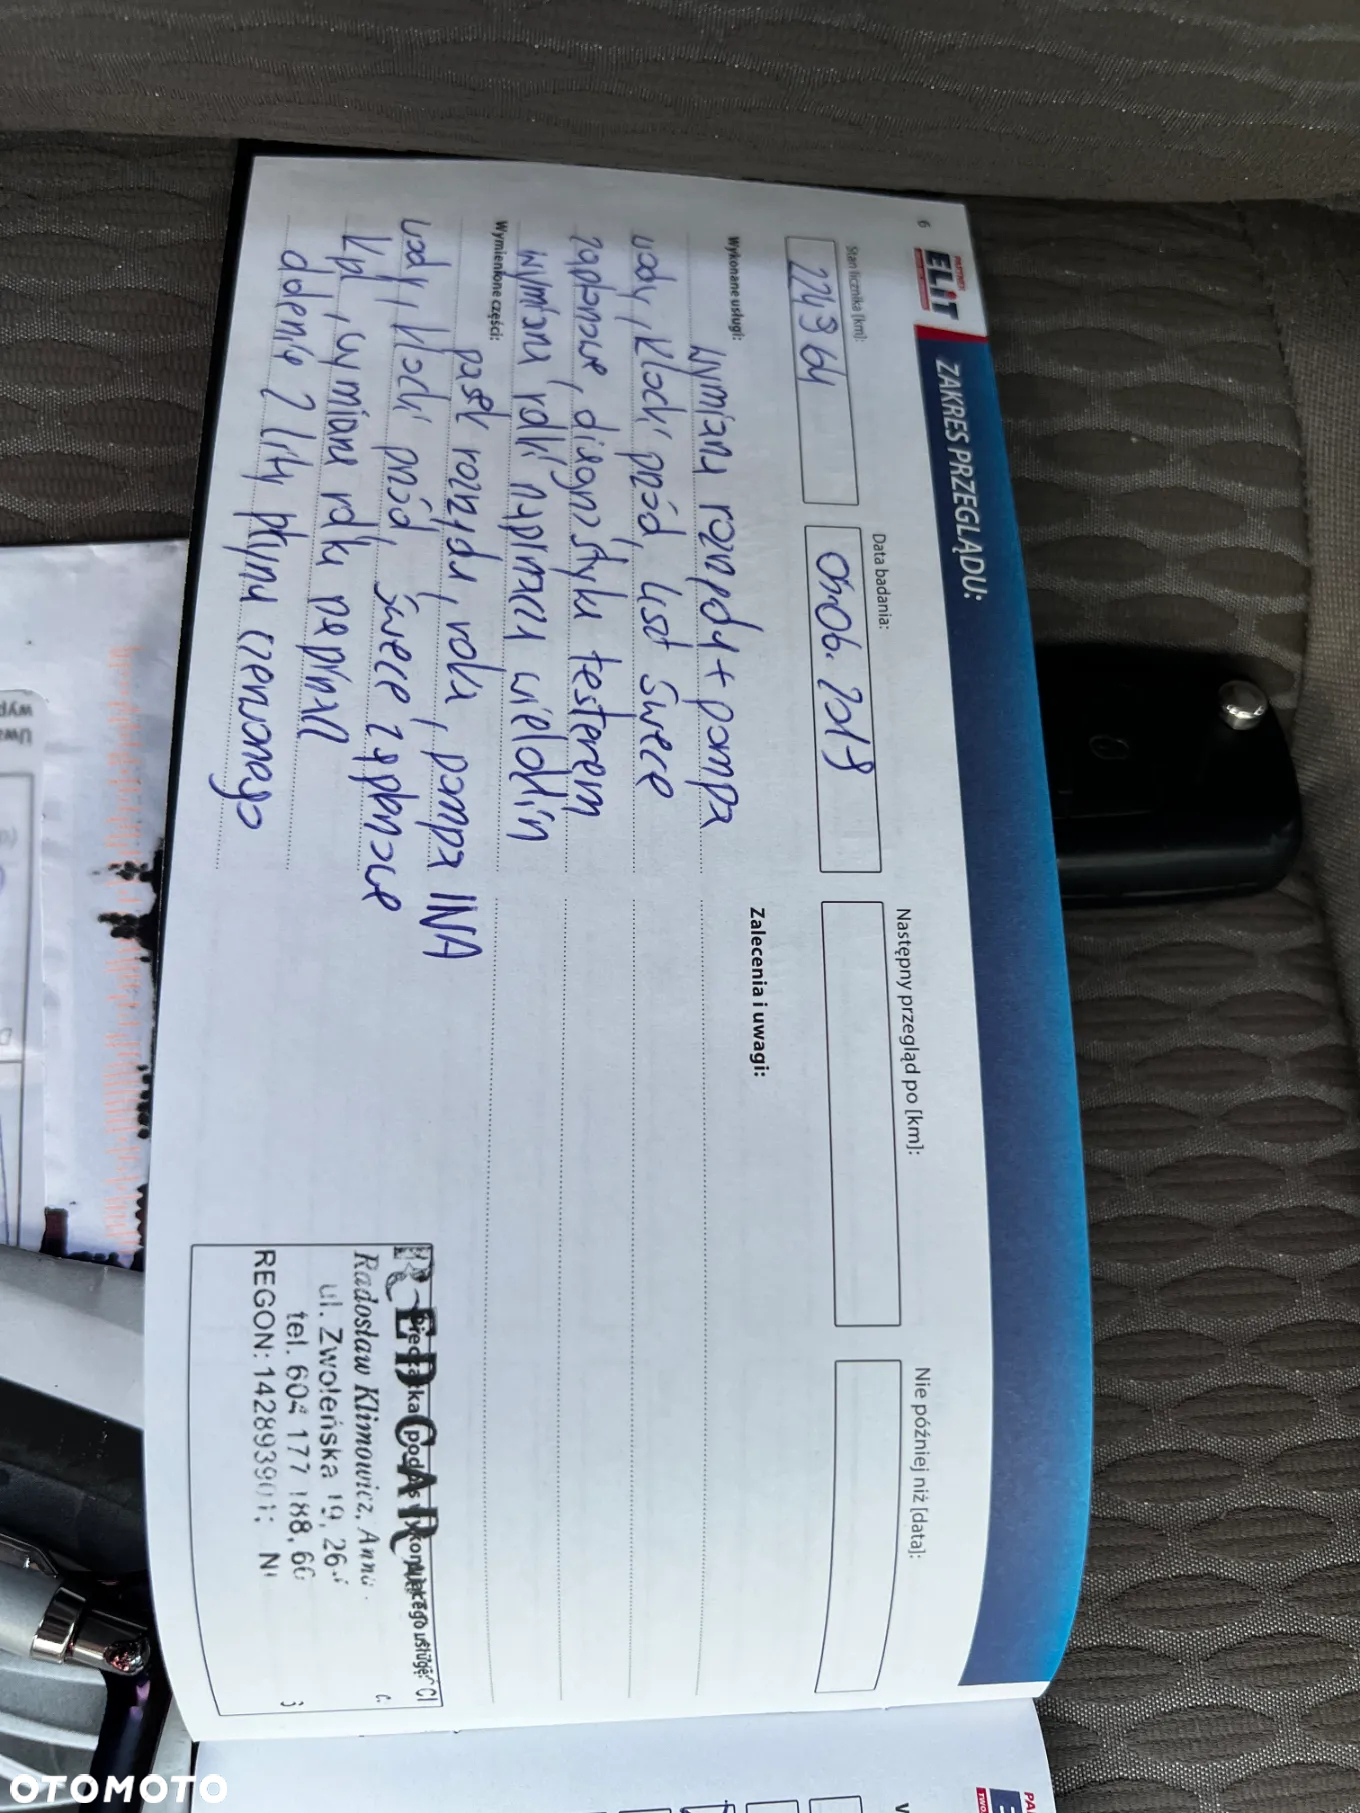 6
PARTNER
ELIT
ZAKRES PRZEGLĄDU:
Stan licznika [km]:
Data badania:
Następny przegląd po [km]:
Nie później niż [data]:
2243 64
06. 2018
Wykonane usługi:
Zalecenia i uwagi:
Wymiana rozrządu + pompa
wody, klocki przód, świece
żarowe, diagnostyka testerem
wymiana rolki naprawa wielo
Wymienione części:
pasek rozrządu, rolka, pompa INA
wody, klocki przód, świece
kpl, wymiana rolka
2 litry płynu czerwonego
Pieczątka podmiotu wykonującego usługę:
REDCAR
Radosław Klimowicz, Ann
ul. Zwoleńska 19, 26-
tel. 604 177 188, 60
REGON: 142893901; NI
OTOMOTO